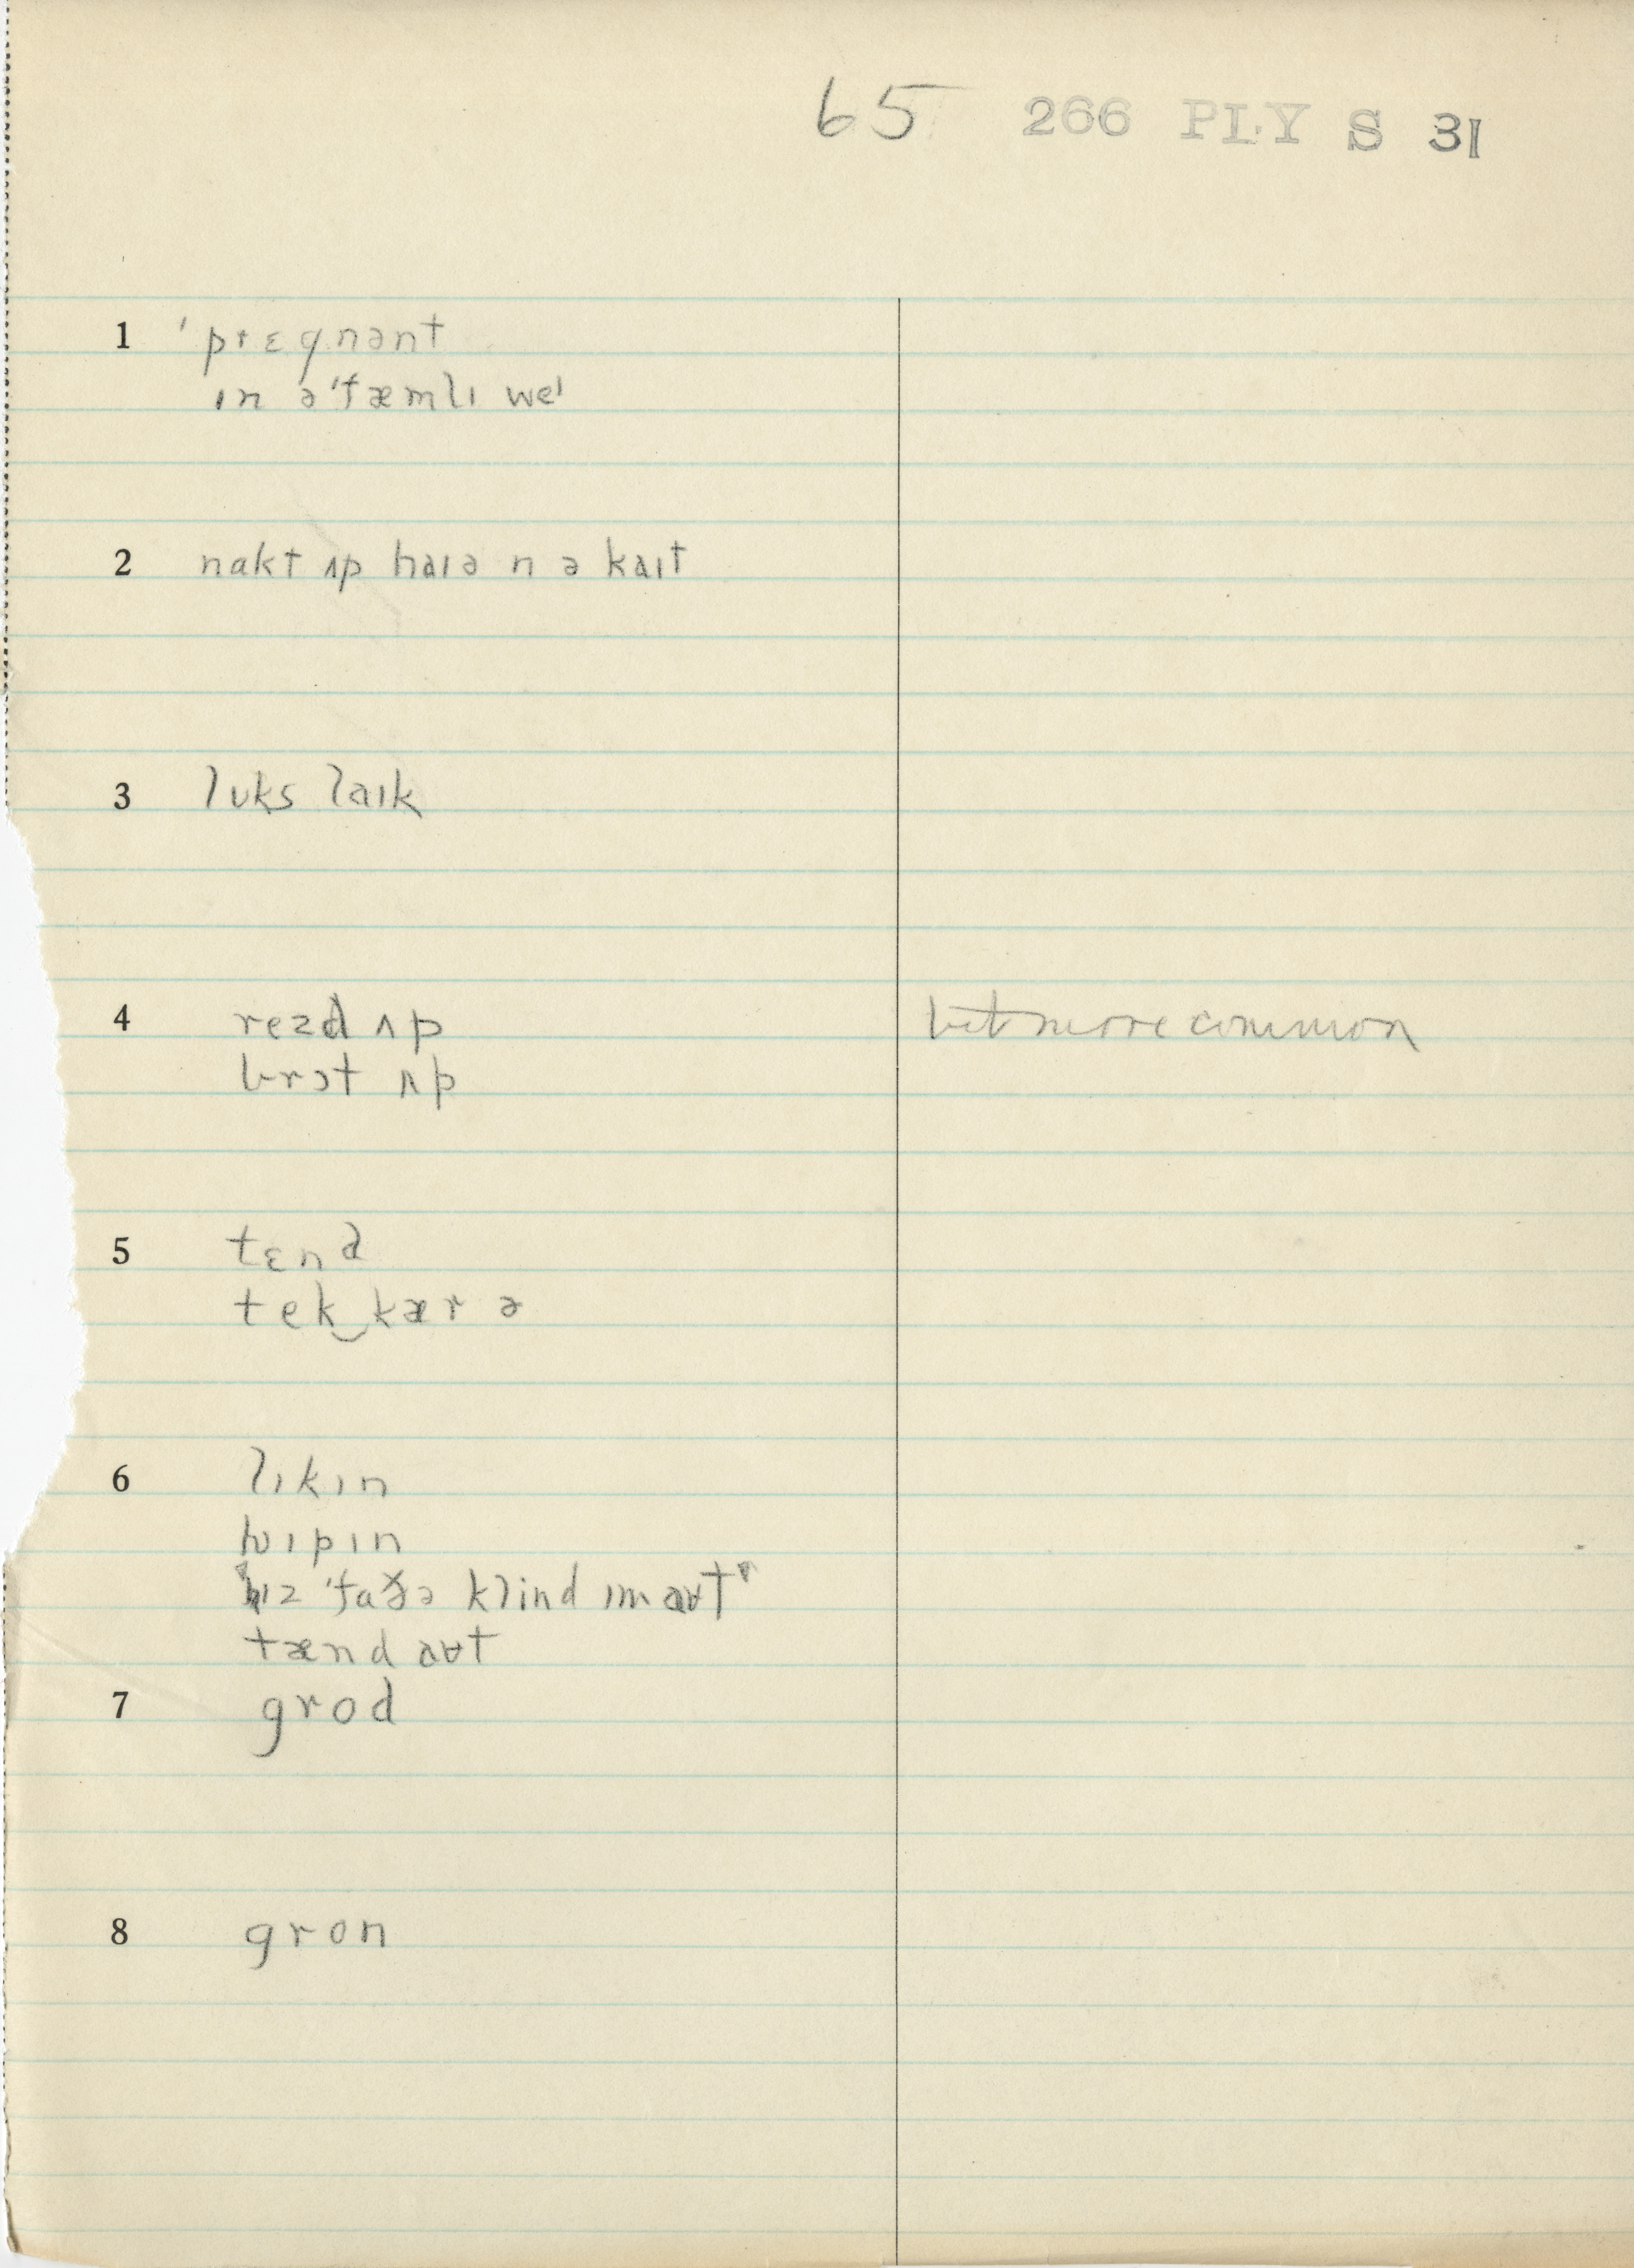 65 266 PLY S 31
1 ˈprɛgnənt
ɪn ə ˈfæmlɪ weˈ
2 nakt ʌp haɪə n ə kaɪt
3 lʊks laɪk
4 rezd ʌp but more common
brɔt ʌp
5 tɛnd
tek‿kær ə
6 lɪkɪn
ʍɪpɪn
"hɪz ˈfaðə klind ɪm aʊt"
tænd aʊt
7 grod
8 gron